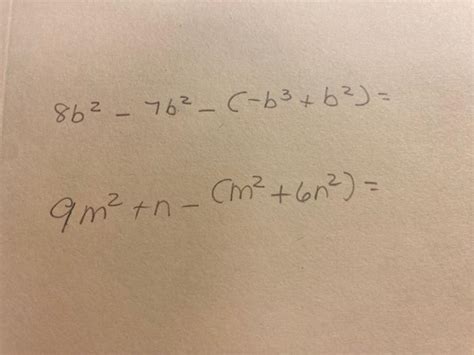 8b² - 7b² - (-b³ + b²) =
9m² + n - (m² + 6n²) =